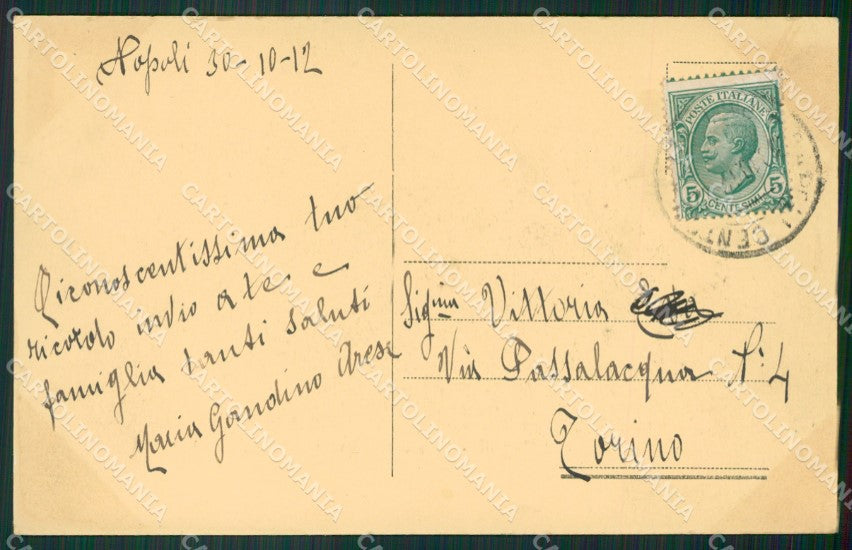 Napoli 30-10-12
Riconoscentissima tuo
ricordo invio a te, e
famiglia tanti saluti
Maria Gandino Arese
POSTE ITALIANE
5 CENTESIMI 5
CENT
Sigina Vittoria
Via Passalacqua N: 4
Torino
CARTOLINOMANIA